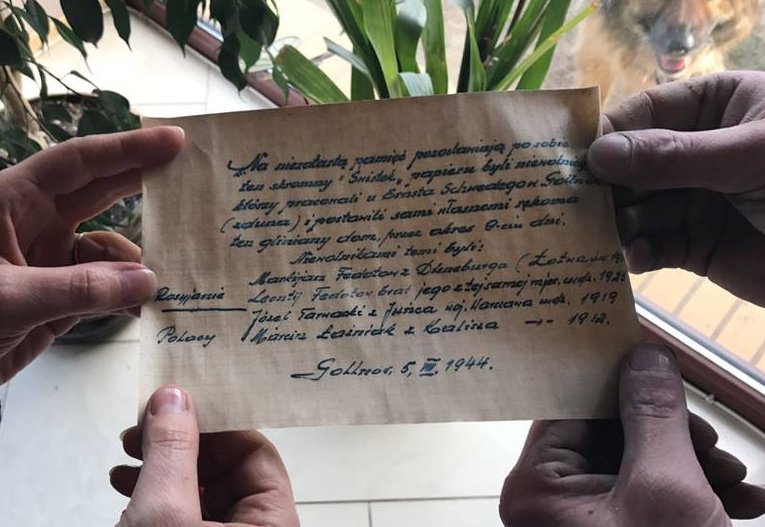 Na niezatartą pamięć pozostaniają po sobie
ten skromny "Świstek" papieru byli niewolnicy
którzy pracowali u Ernsta Schwedego w Gollnow
(zduna) i postawili sami własnemi rękoma
ten gliniany dom, przez okres 9-ciu dni.
Niewolnikami temi byli:
Markijan Fedotow z Dyneburga (Łotwa)
Rosyjanie Leontij Fedotow brat jego z tej samej miejs. urdz. 1925
Józef Tarnacki z woj. Warszawa urdz. 1919
Polacy Marcin Łaśniak z Koalina —"— 1912.
Gollnow, 5, VII. 1944.